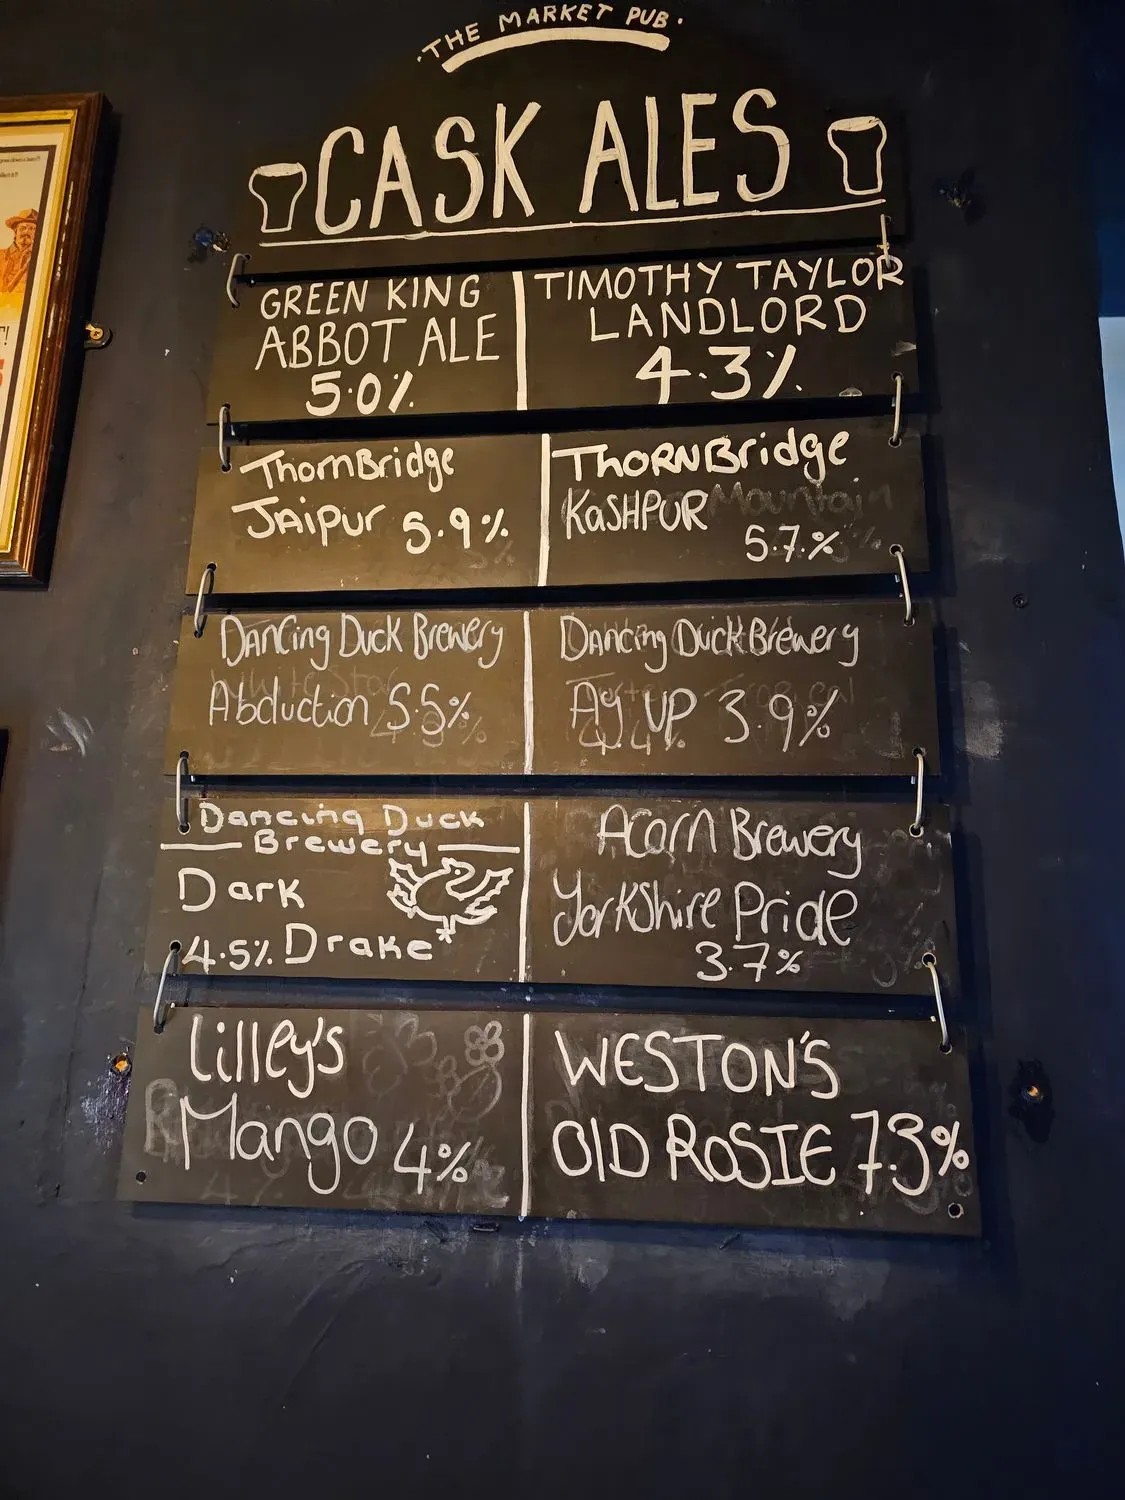 ·THE MARKET PUB·
CASK ALES
GREEN KING
ABBOT ALE
5·0%
TIMOTHY TAYLOR
LANDLORD
4·3%
ThornBridge
JAipur 5.9%
ThoRNBridge
KaSHPUR
5.7.%
Dancing Duck Brewery
Abduction 5.5%
Dancing Duck Brewery
Ay UP 3.9%
Dancing Duck
Brewery
Dark
4.5% Drake
Acorn Brewery
Yorkshire Pride
3.7%
Lilley's
Mango 4%
WESTON'S
OlD RoSIE 7.3%